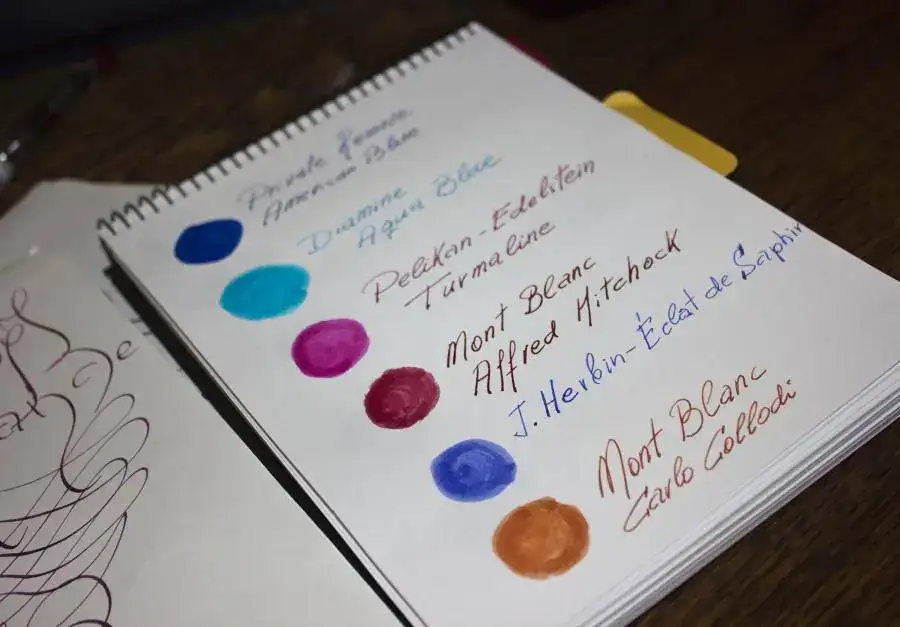 Private Reserve
American Blue
Diamine
Aqua Blue
Pelikan-Edelstein
Turmaline
Mont Blanc
Alfred Hitchock
J. Herbin-Éclat de Saphir
Mont Blanc
Carlo Collodi